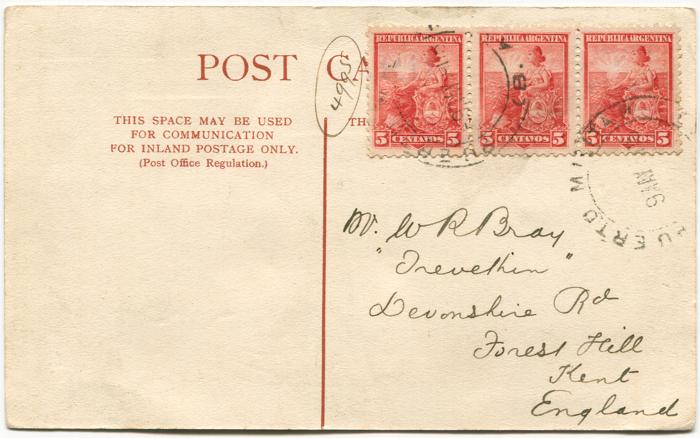 REPUBLICA ARGENTINA REPUBLICA ARGENTINA REPUBLICA ARGENTINA
5 CENTAVOS 5 5 CENTAVOS 5 5 CENTAVOS 5
POST CA
4995
THIS SPACE MAY BE USED
FOR COMMUNICATION
FOR INLAND POSTAGE ONLY.
(Post Office Regulation.)
TH
(B.
PUERTO
MAY
Mr. W R Bray
"Trevethin"
Devonshire Rd
Forest Hill
Kent
England